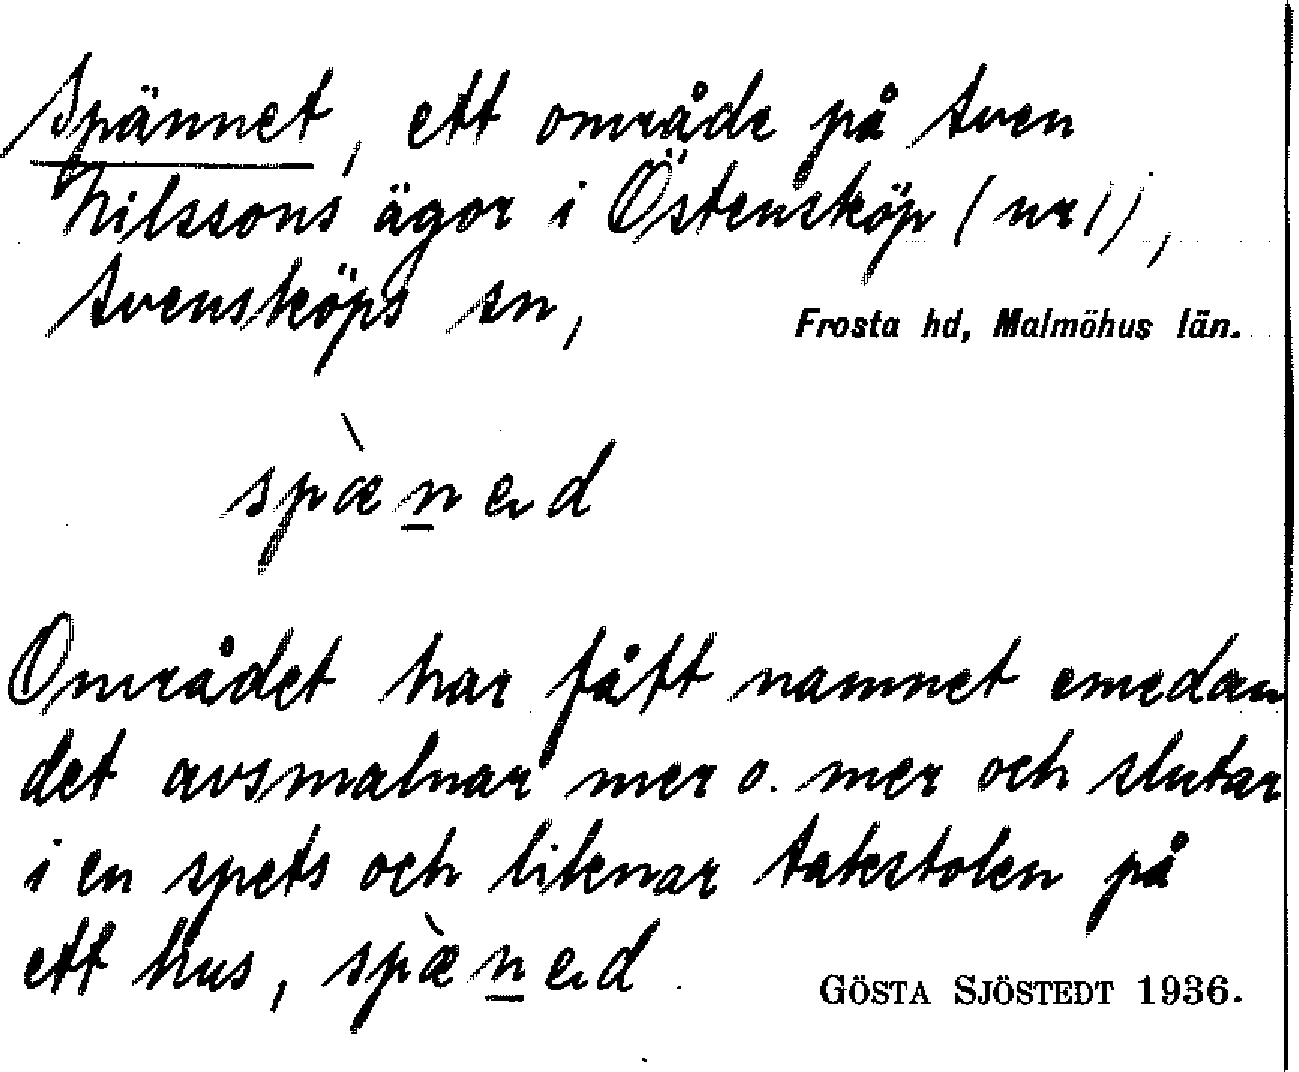 Spännet, ett område på Sven
Nilssons ägor i Östensköp (nr 1),
Svensköps sn, Frosta hd, Malmöhus län.
spæ̀n̲ed
Området har fått namnet emedan
det avsmalnar mer o. mer och slutar
i en spets och liknar takstolen på
ett hus, spæ̀n̲ed.
GÖSTA SJÖSTEDT 1936.